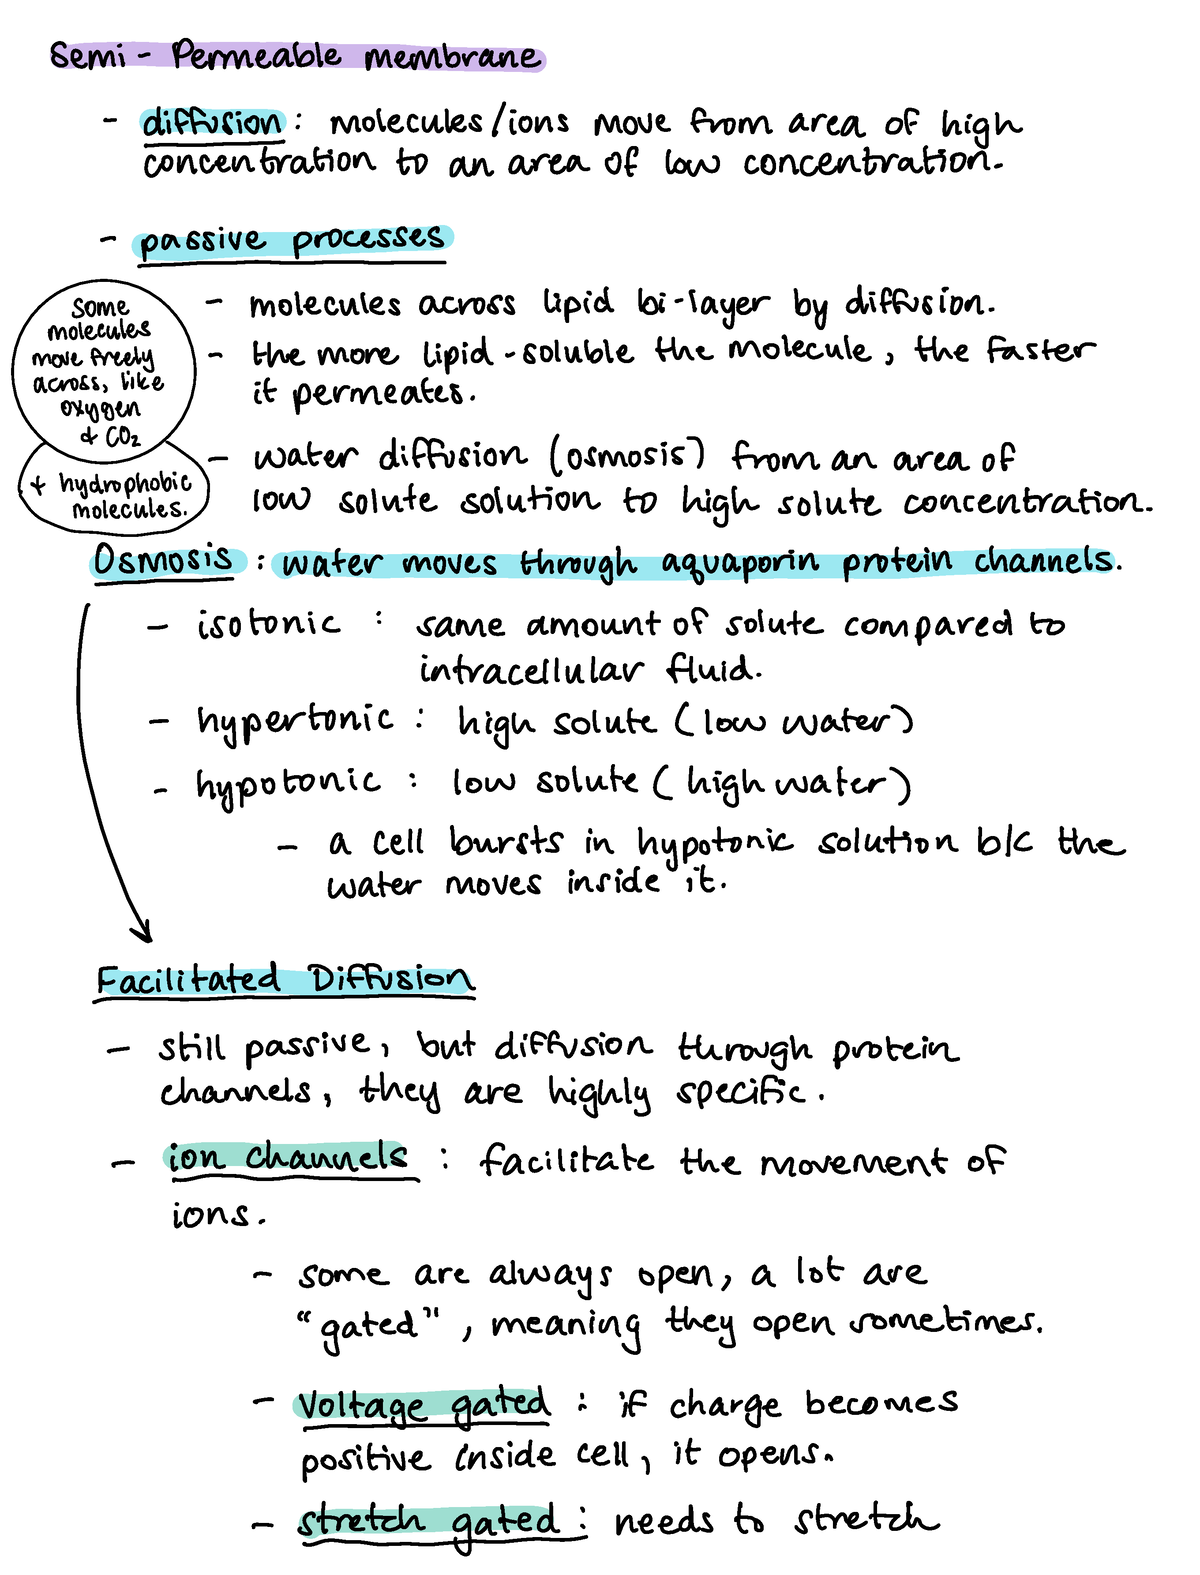 Semi - Permeable membrane
- diffusion : molecules/ions move from area of high
concentration to an area of low concentration.
- passive processes
- molecules across lipid bi-layer by diffusion.
- the more lipid-soluble the molecule, the faster
it permeates.
Some
molecules
move freely
across, like
oxygen
& CO₂
+ hydrophobic
molecules.
- water diffusion (osmosis) from an area of
low solute solution to high solute concentration.
Osmosis : water moves through aquaporin protein channels.
- isotonic : same amount of solute compared to
intracellular fluid.
- hypertonic : high solute (low water)
- hypotonic : low solute (high water)
- a cell bursts in hypotonic solution b/c the
water moves inside it.
Facilitated Diffusion
- still passive, but diffusion through protein
channels, they are highly specific.
- ion channels : facilitate the movement of
ions.
- some are always open, a lot are
"gated", meaning they open sometimes.
- Voltage gated : if charge becomes
positive inside cell, it opens.
- stretch gated : needs to stretch